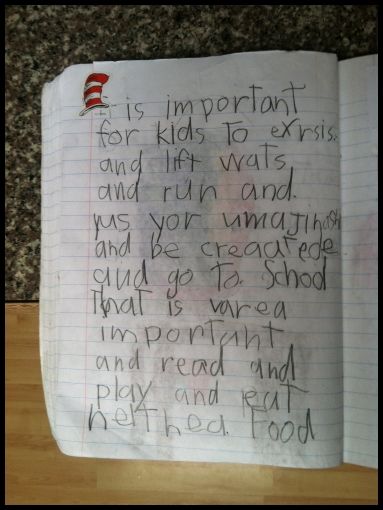 It is important
for kids to exrsis.
and lift wats
and run and.
yus yor umajinashin
and be creqatede
and go to. School
that is varea
important
and read and
play and eat
helthed. food